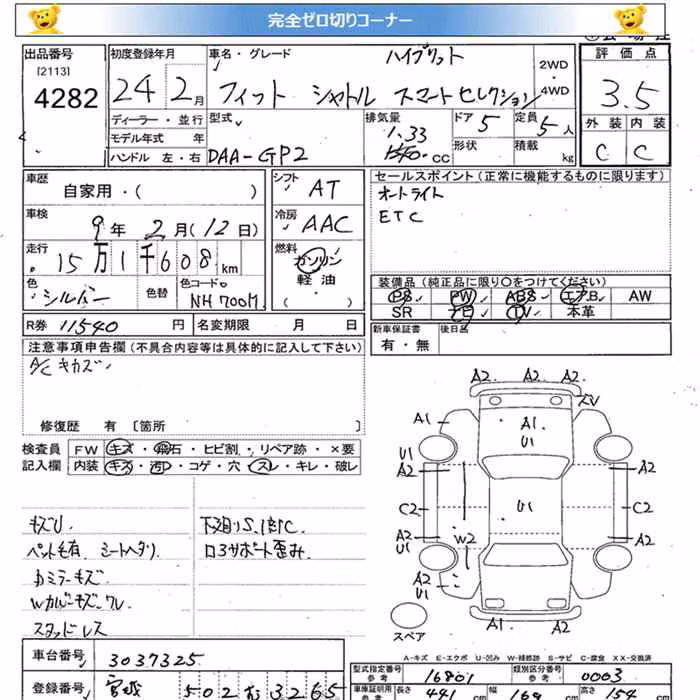 完全ゼロ切りコーナー
出品番号
[2113]
4282
初度登録年月
24 2月
ディーラー・並行
モデル年式 年
ハンドル 左・右
車名・グレード ハイブリット
フィット シャトル スマートセレクション
2WD
4WD
型式
DAA-GP2
排気量
1.33
cc
ドア 5
形状
定員 5人
積載 kg
評価点
3.5
外装 内装
C C
車歴
自家用・( )
車検
9年 2月(12日)
走行
15万1千608km
色
シルバー
色替
色コード
NH700M
シフト AT
冷房 AAC
燃料
ガソリン
軽油
( )
セールスポイント(正常に機能するものに限ります)
オートライト
ETC
装備品(純正品に限り○をつけてください)
PS PW ABS エアB AW
SR ナビ TV 本革
新車保証書
有・無
後日品
R券 11540 円
名変期限 月 日
注意事項申告欄(不具合内容等は具体的に記入して下さい)
A/C キカズ
修復歴 有〔箇所 〕
検査員
記入欄
FW キズ・飛石・ヒビ割・リペア跡・×要
内装 キズ・汚レ・コゲ・穴・スレ・キレ・破レ
キズU.
ペット毛有. シートヘタリ.
カミラーキズ.
Wカバーキズ.ワレ.
スタッドレス
下廻りS.サビC.
ロアサポート歪み.
A2. A2. A2.
A1
A1.
U1
U1
A2
A2
C2
U1
C2
A2
U1
W2
A2
A2
U1
A1 A2
スペア
A-キズ E-エクボ U-凹み W-補修跡 S-サビ C-腐食 XX-交換済
車台番号
3037325
登録番号
宮城 502 お 3265
型式指定番号
参考
16801
類別区分番号
参考
0003
車庫証明用
参考
長さ 441 cm 幅 169 cm 高さ 154 cm